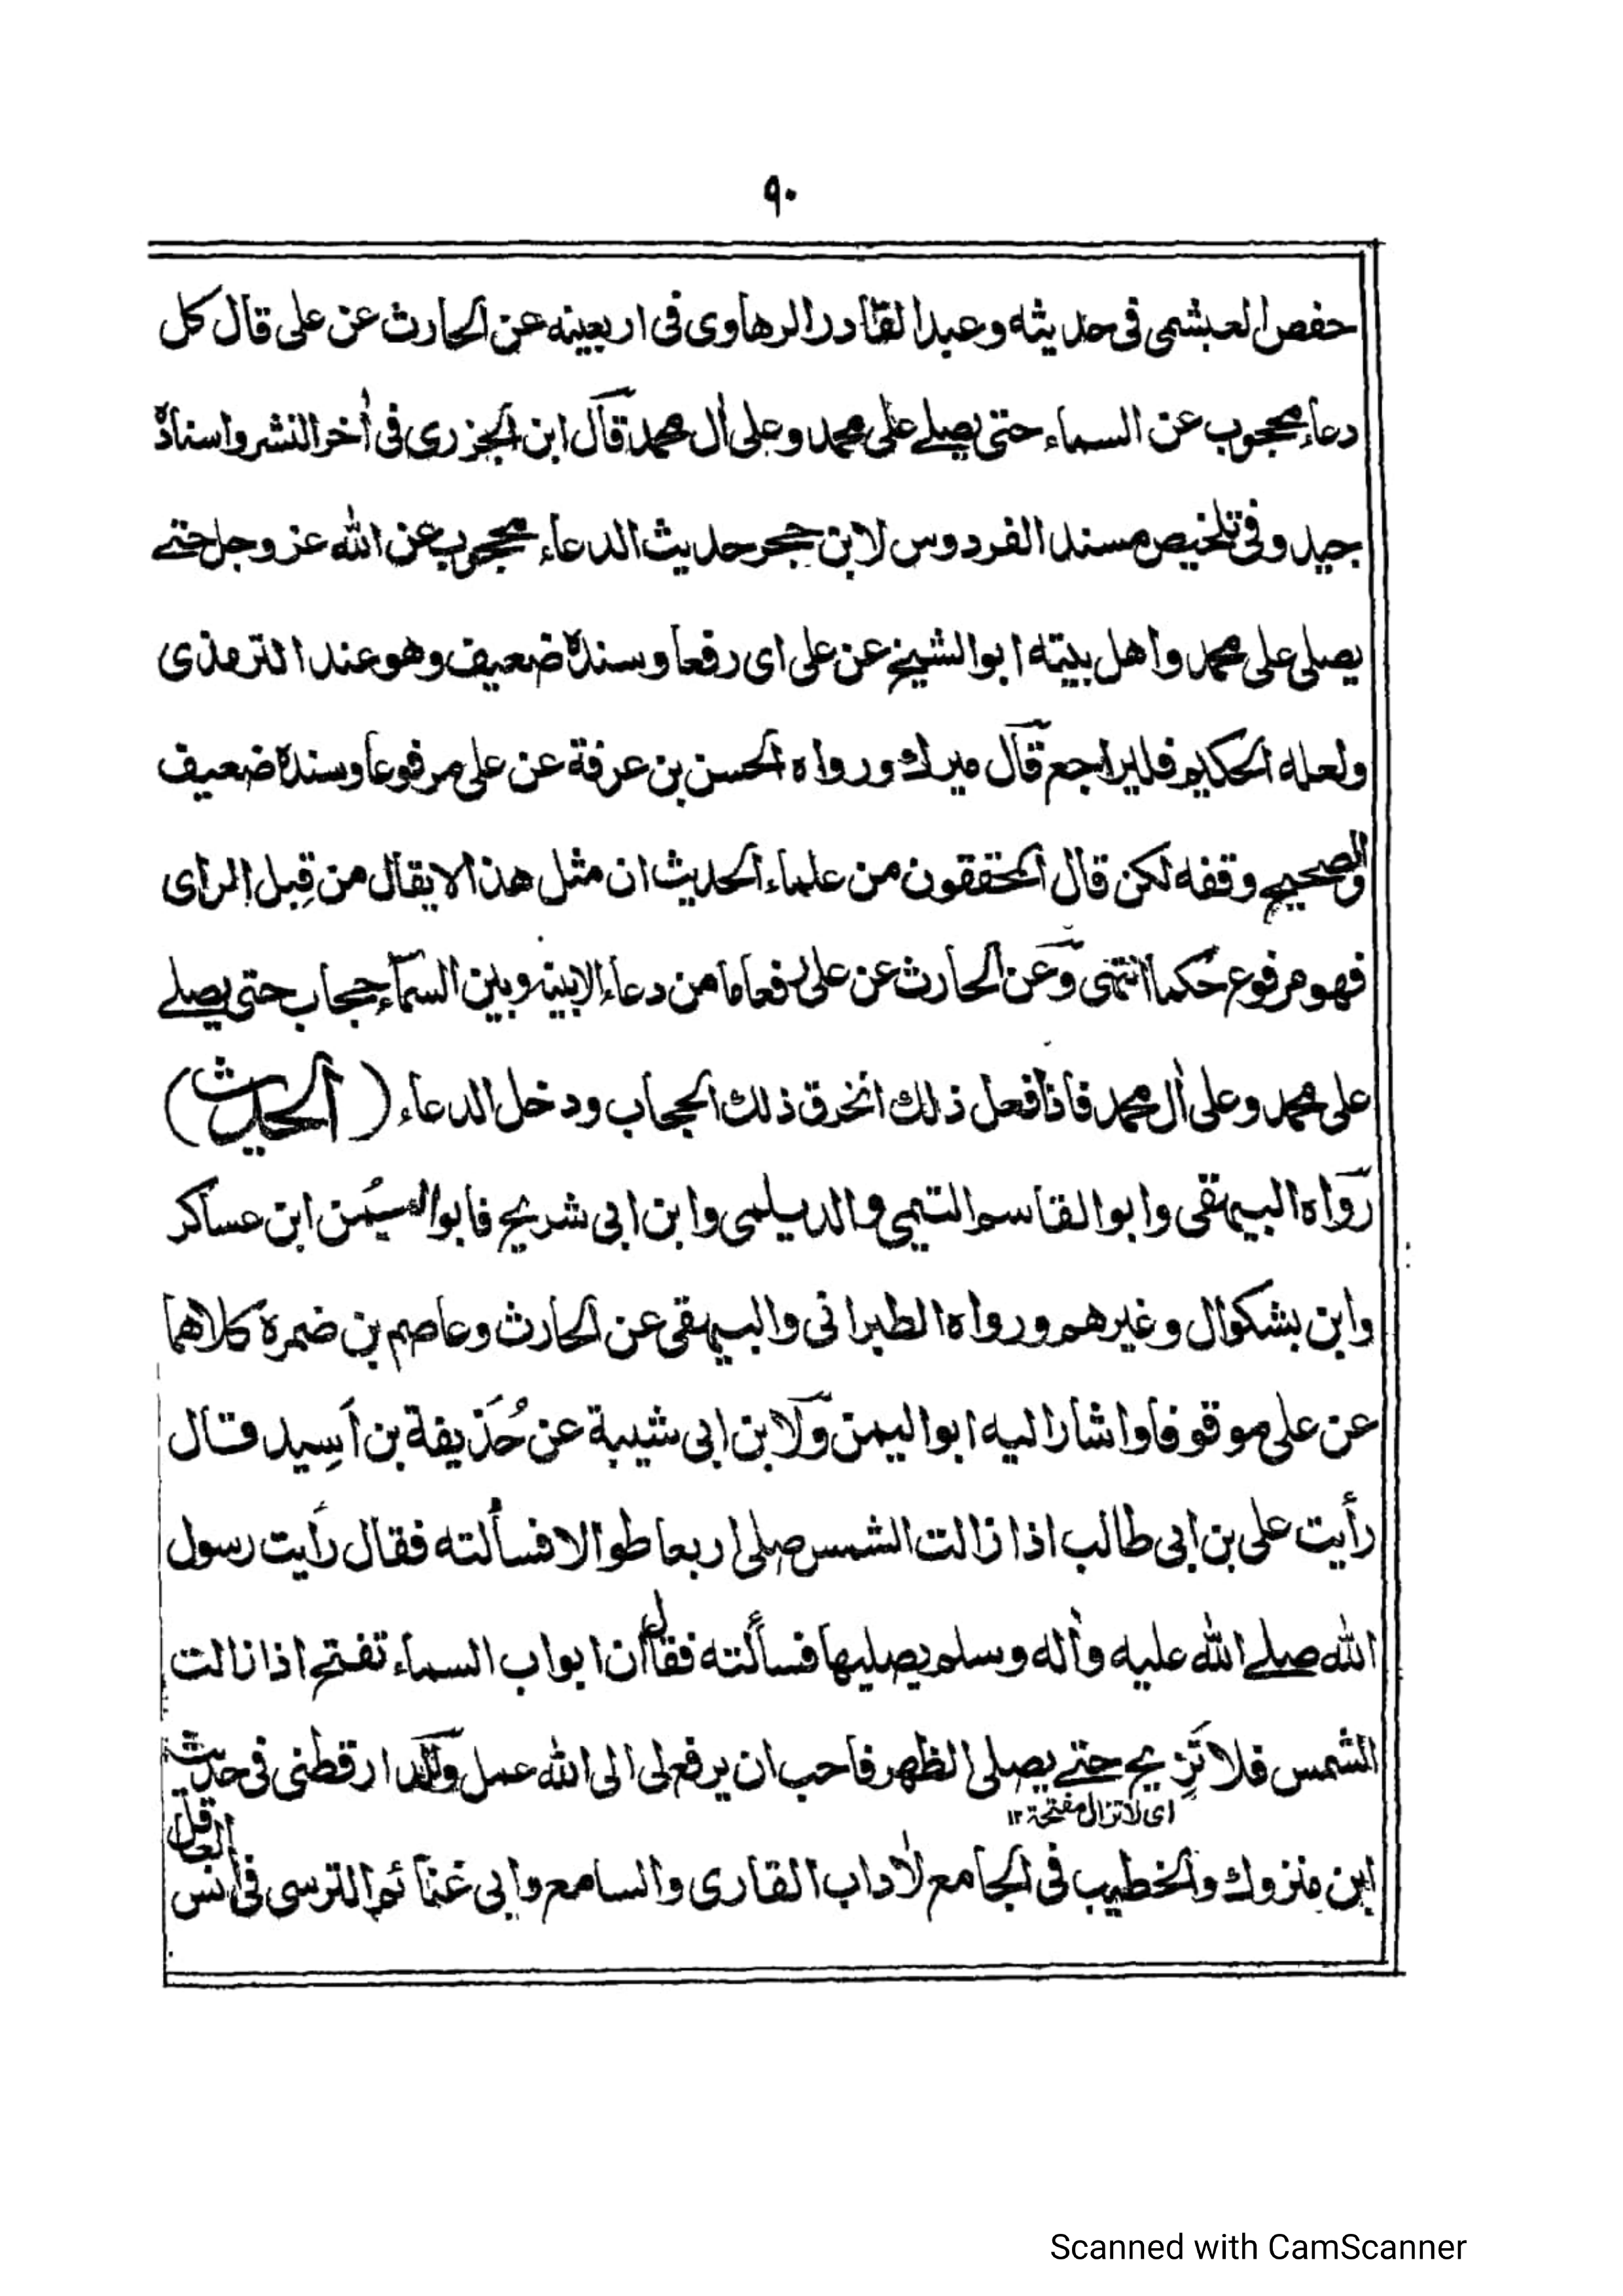 ٩٠
حفص العبشمي في حديثه وعبد القادر الرهاوى فى اربعينه عن الحارث عن على قال كل
دعاء محجوب عن السماء حتى يصلے على محمد وعلى اٰل محمد قال ابن الجزرى فى اٰخر النشر واسنادہ
جيد وفى تلخيص مسند الفردوس لابن حجر حديث الدعاء محجوب عن الله عز وجل حتے
يصلى على محمد واهل بيته ابو الشيخ عن على اى رفعا وسندہ ضعيف وهو عند الترمذى
ولعله الحكيم فليراجع قال ميرك ورواه الحسن بن عرفة عن على مرفوعا وسندہ ضعيف
والصحيح وقفه لكن قال المحققون من علماء الحديث ان مثل هذا لا يقال من قِبل الراى
فهو مرفوع حُكما انتهى وعن الحارث عن على رفعا ما من دعاء الا بينه وبين السماء حجاب حتى يصلے
على محمد وعلى اٰل محمد فاذا فعل ذلك انخرق ذلك الحجاب ودخل الدعاء (الحديث)
رواه البيهقى وابو القاسم التيمى والديلمى وابن ابى شريح وابو اليُمن ابن عساكر
وابن بشكوال وغيرهم ورواه الطبرانى والبيهقى عن الحارث وعاصم بن ضمرة كلاهما
عن على موقوفا واشار اليه ابو اليمن ولابن ابى شيبة عن حُذَيفة بن اَسِيد قال
رأيت على بن ابى طالب اذا زالت الشمس صلى اربعا طوالا فسألته فقال رأيت رسول
الله صلے الله عليه واٰله وسلم يصليها فسألته فقال ان ابواب السماء تفتح اذا زالت
الشمس فلا تَرِيح حتے يصلى الظهر فاحب ان يرفع لى الى الله عمل وللدارقطنى فى حديث
اى لا تزال مفتحة ١٢
ابن منزوك والخطيب فى الجامع لاٰداب القارى والسامع وابى غنائم الترسى فى انس
العاقل
Scanned with CamScanner